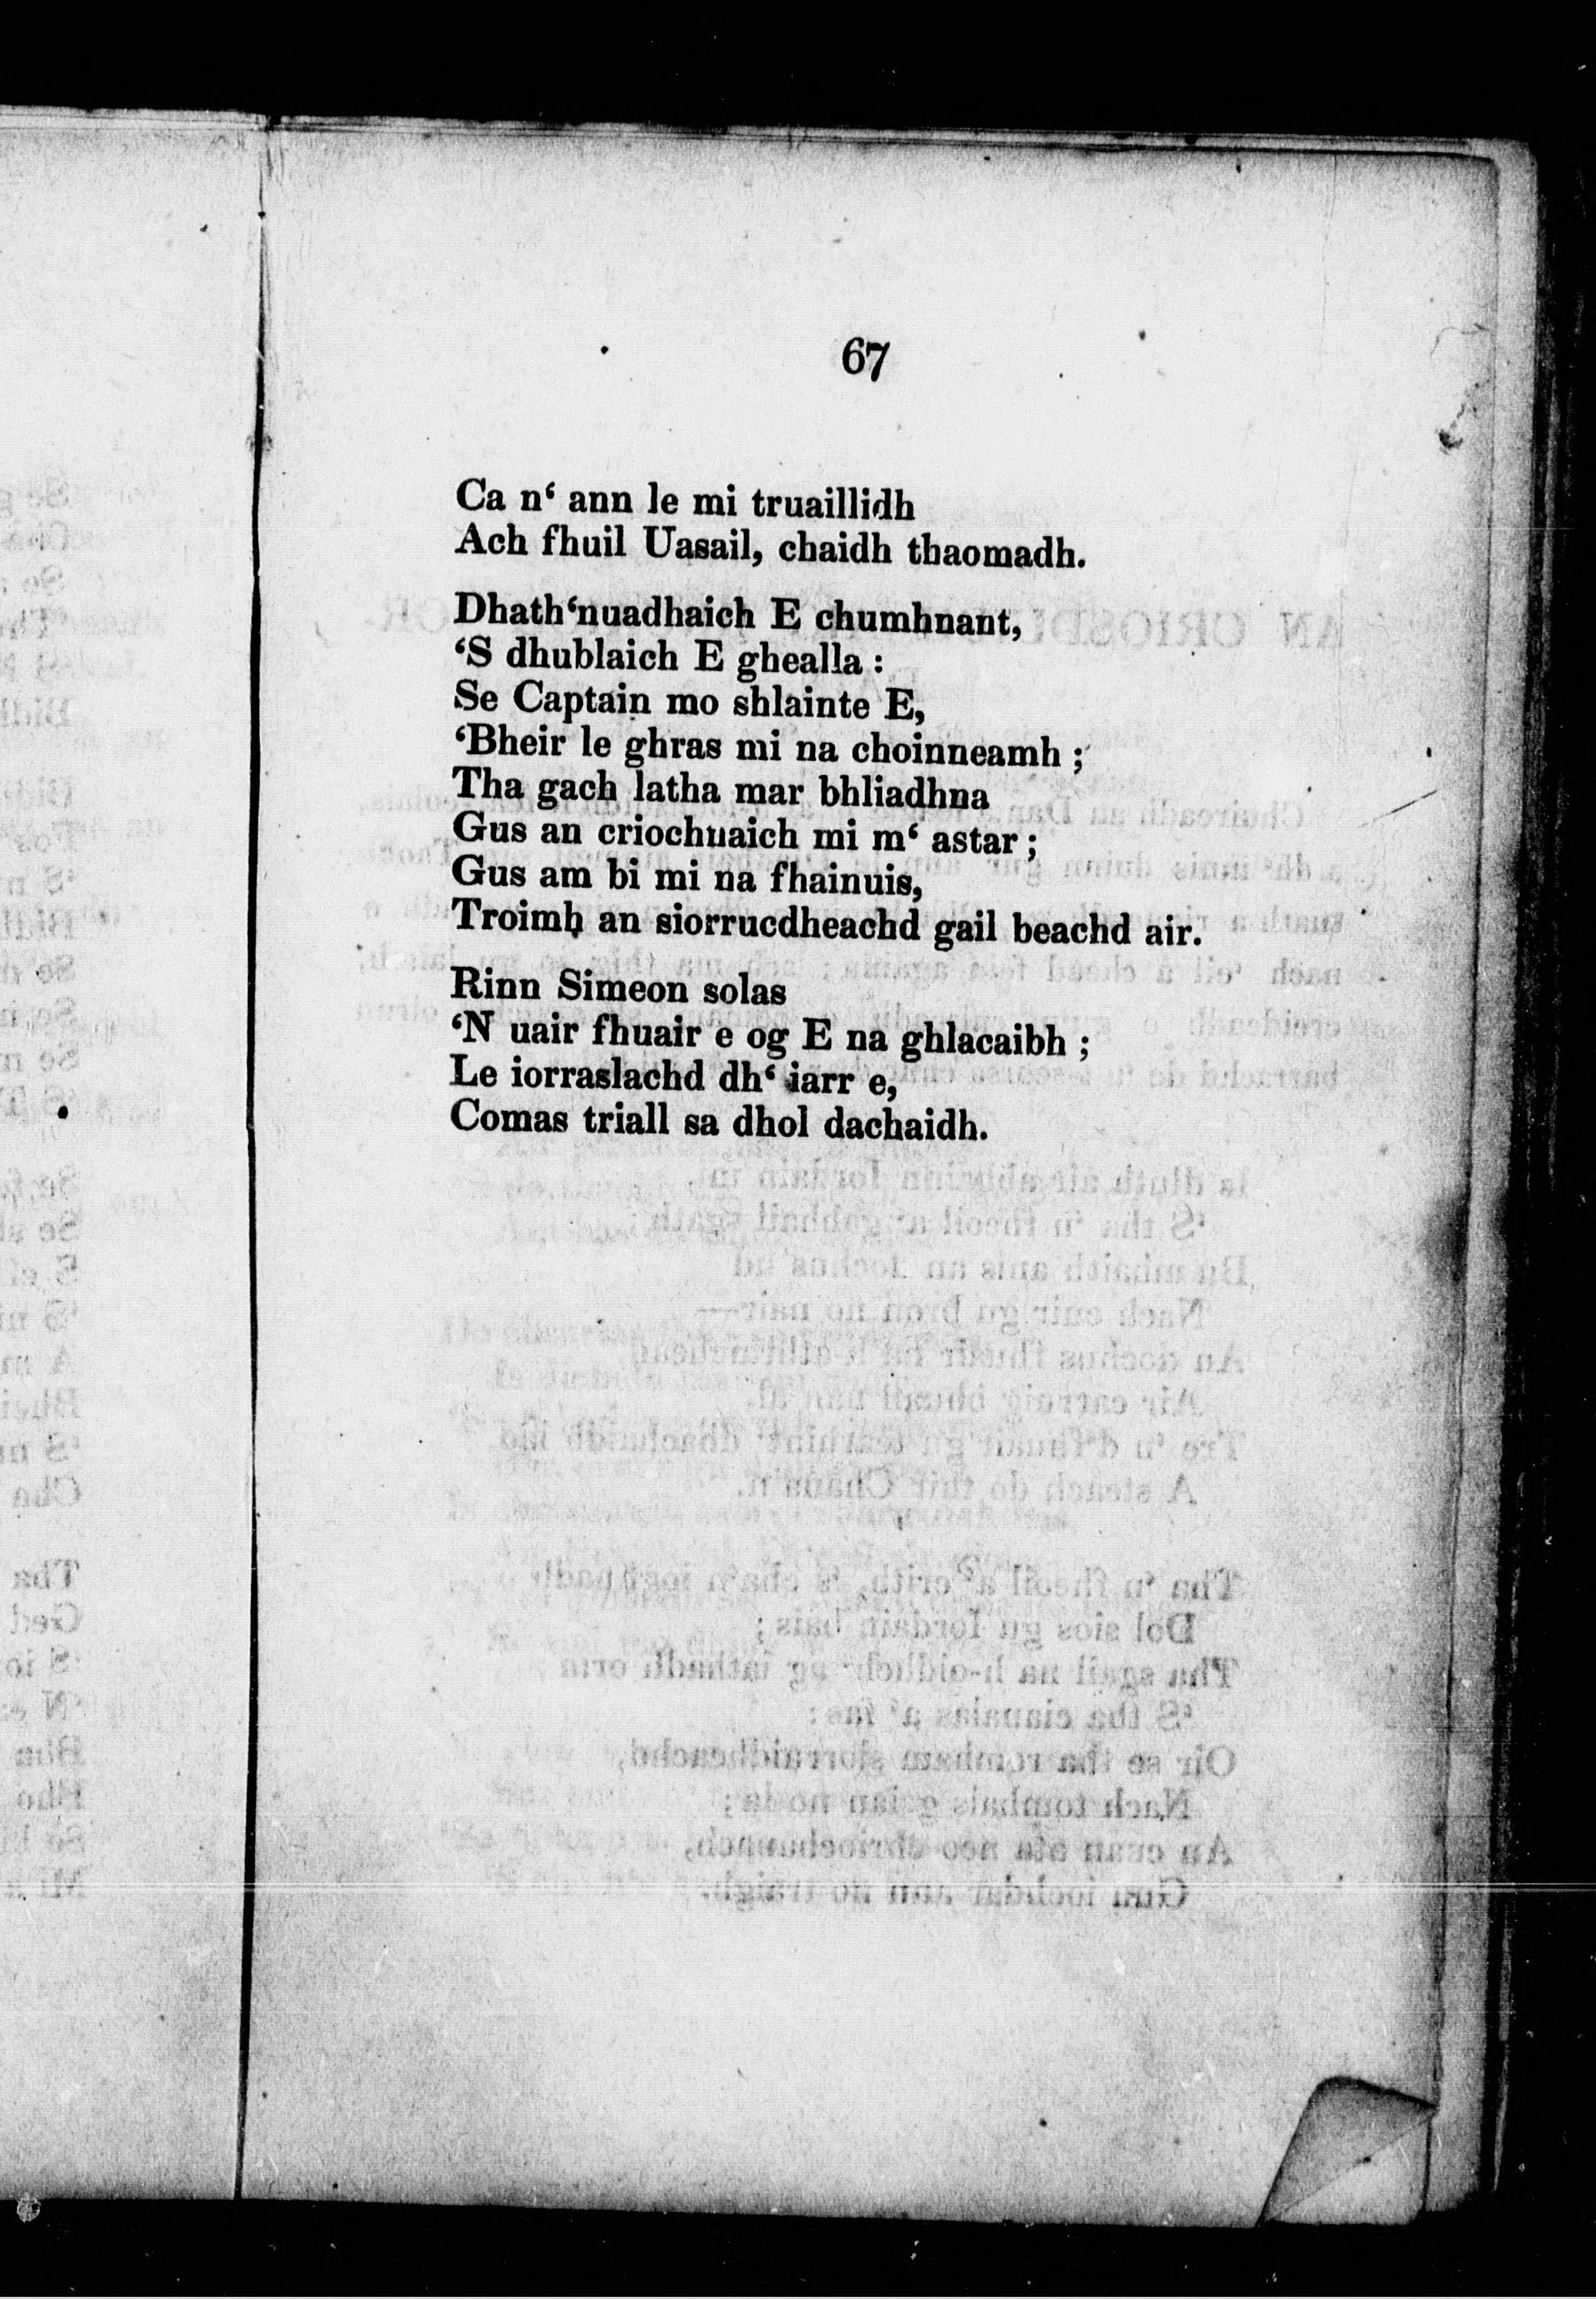 67
Ca n‘ ann le mi truaillidh
Ach fhuil Uasail, chaidh thaomadh.
Dhath‘nuadhaich E chumhnant,
‘S dhublaich E ghealla :
Se Captain mo shlainte E,
‘Bheir le ghras mi na choinneamh ;
Tha gach latha mar bhliadhna
Gus an criochnaich mi m‘ astar ;
Gus am bi mi na fhainuis,
Troimh an siorrucdheachd gail beachd air.
Rinn Simeon solas
‘N uair fhuair e og E na ghlacaibh ;
Le iorraslachd dh‘ iarr e,
Comas triall sa dhol dachaidh.